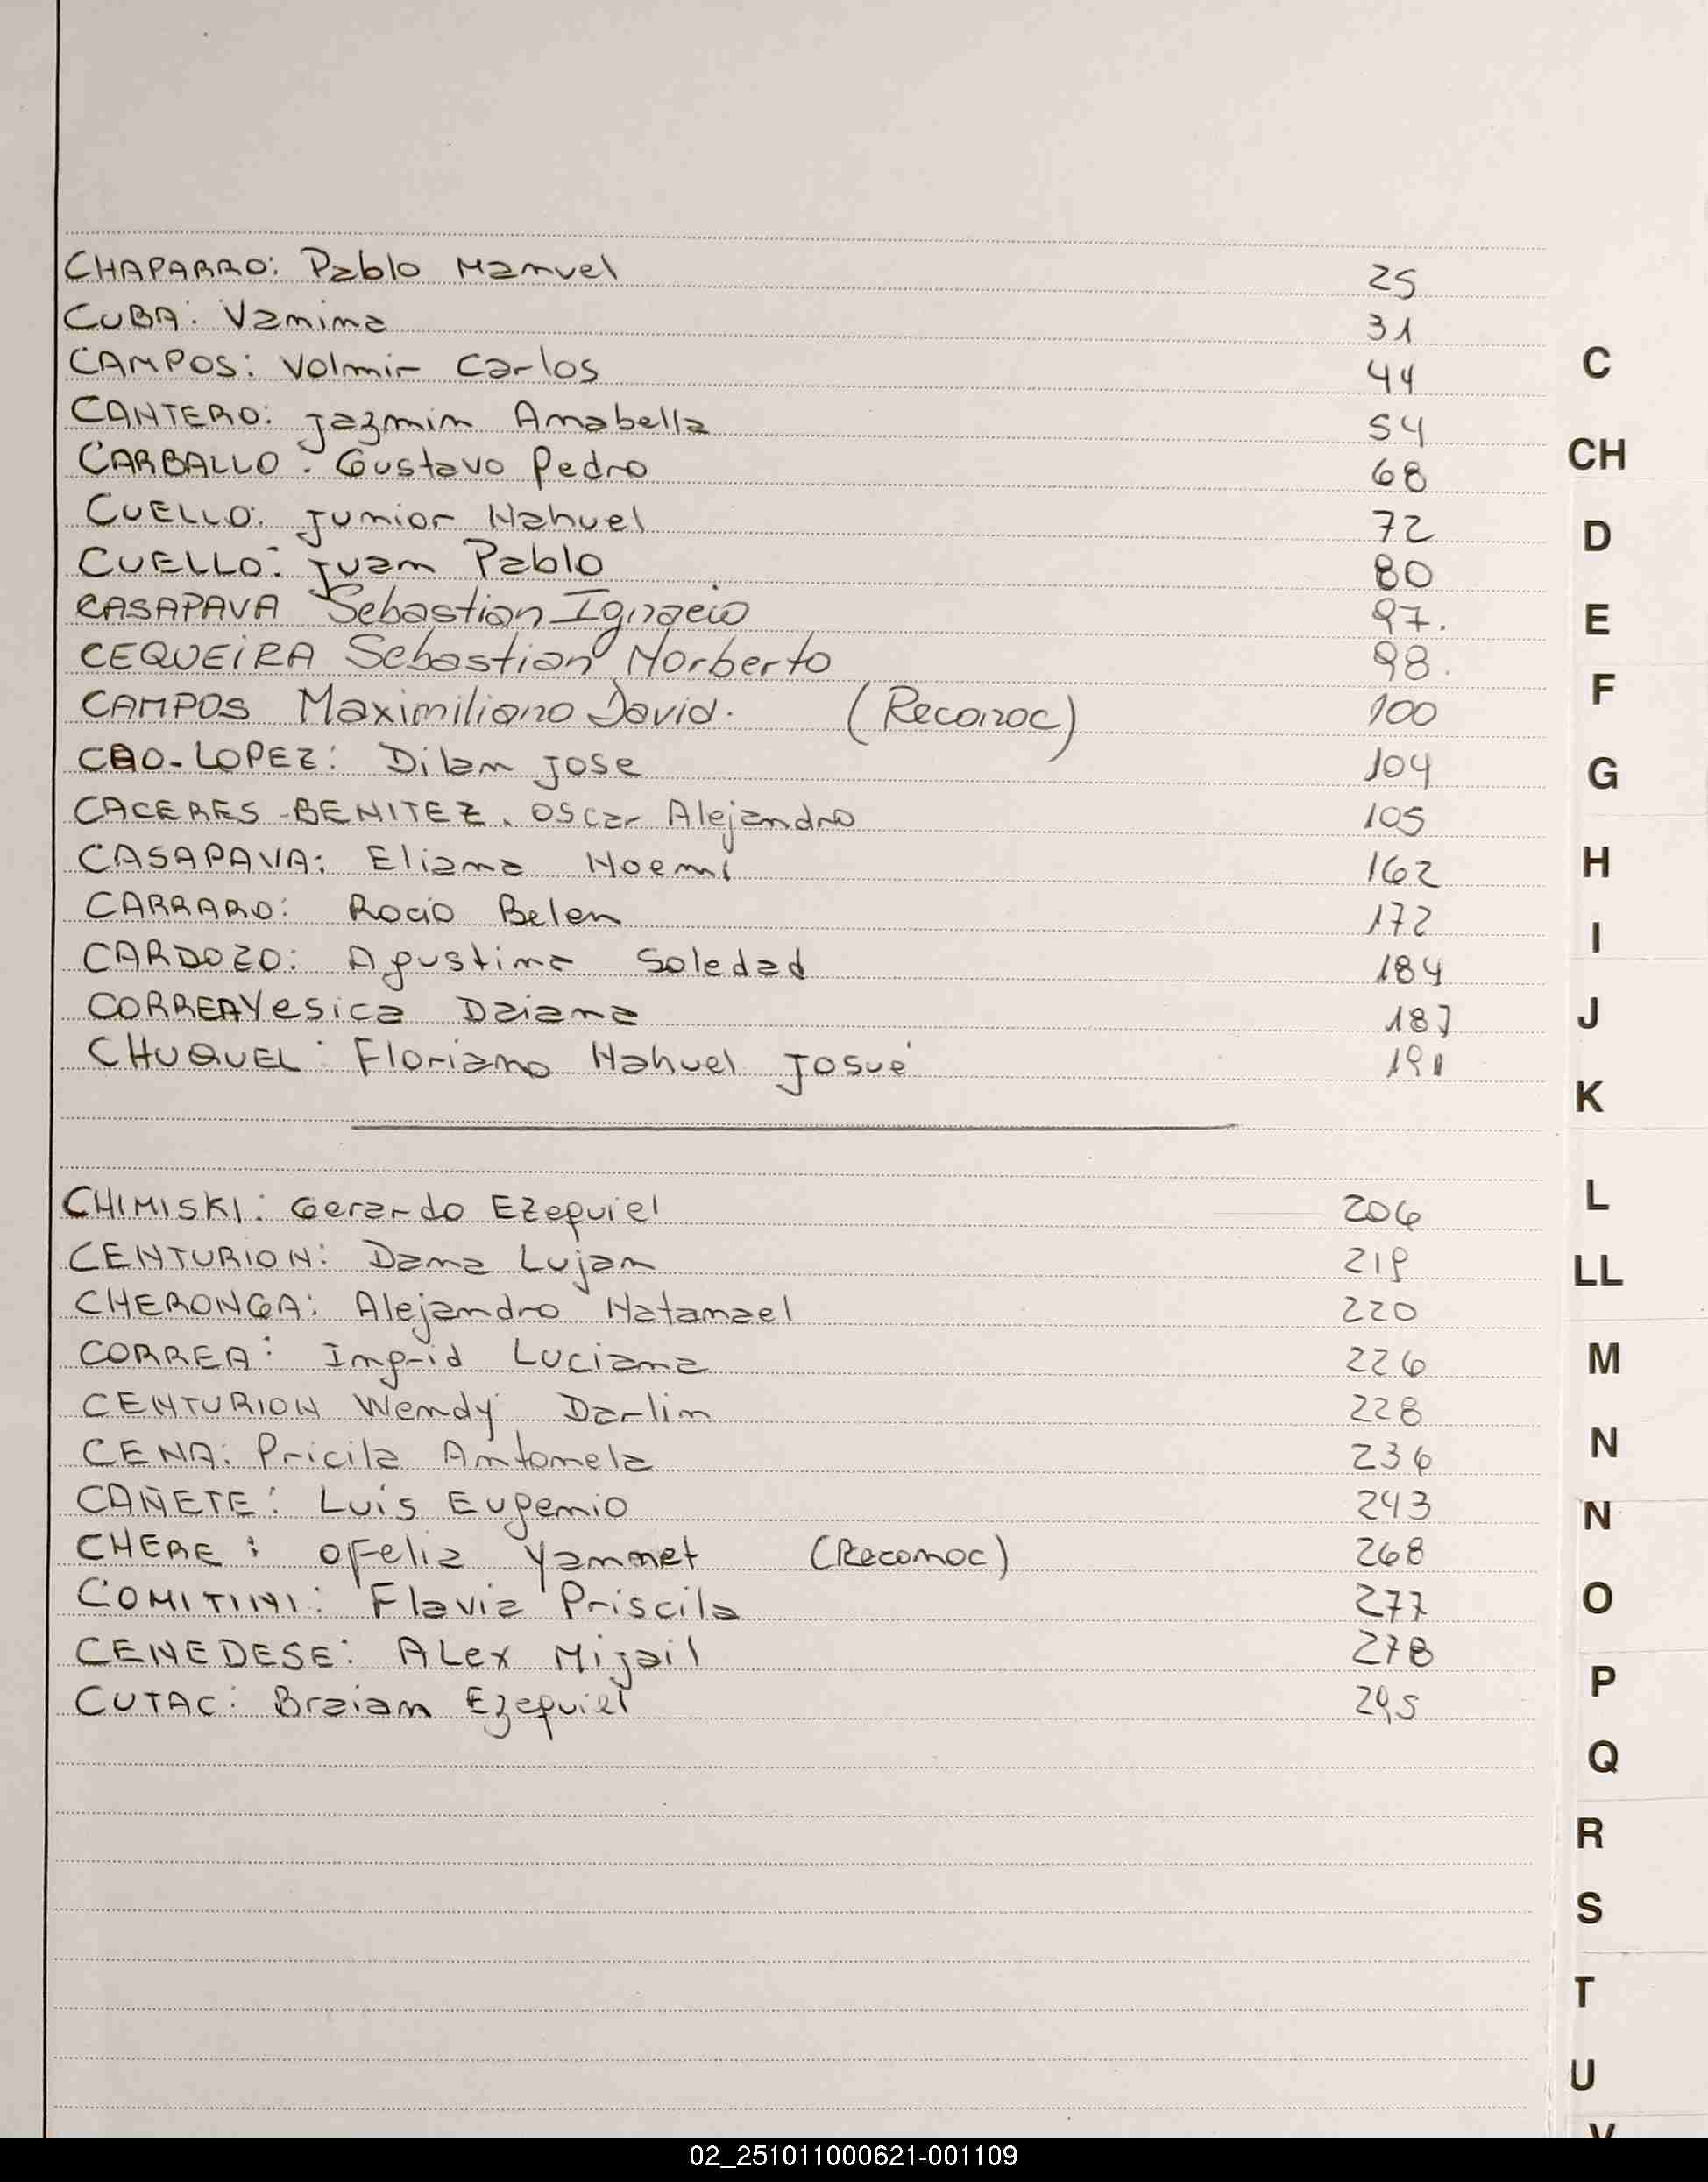 CHAPARRO: Pablo Manuel 25
CUBA: Vanina 31
CAMPOS: Volmir Carlos 44
CANTERO: Jazmin Anabella 54
CARBALLO: Gustavo Pedro 68
CUELLO: Junior Nahuel 72
CUELLO: Juan Pablo 80
CASAPAVA Sebastian Ignacio 97.
CEQUEIRA Sebastian Norberto 98.
CAMPOS Maximiliano David. (Reconoc) 100
CAO-LOPEZ: Dilan Jose 104
CACERES-BENITEZ. Oscar Alejandro 105
CASAPAVA: Eliana Noemí 162
CARRARO: Rocio Belen 172
CARDOZO: Agustina Soledad 184
CORREA Yesica Daiana 187
CHUQUEL: Floriano Nahuel Josué 191
CHIMISKI: Gerardo Ezequiel 206
CENTURION: Dana Lujan 219
CHERONGA: Alejandro Natanael 220
CORREA: Ingrid Luciana 226
CENTURION Wendy Darlin 228
CENA: Pricila Antonela 236
CAÑETE: Luis Eugenio 243
CHERE: Ofelia Yannet (Reconoc) 268
COMITINI: Flavia Priscila 277
CENEDESE: ALex Mijail 278
CUTAC: Braian Ezequiel 295
C
CH
D
E
F
G
H
I
J
K
L
LL
M
N
N
O
P
Q
R
S
T
U
V
02_251011000621-001109